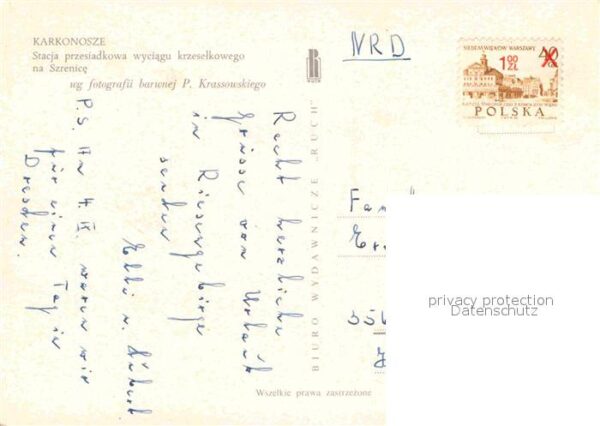 KARKONOSZE
Stacja przesiadkowa wyciągu krzesełkowego
na Szrenicę
wg fotografii barwnej P. Krassowskiego
RUCH
NRD
SIEDEM WIEKÓW WARSZAWY
1,90 ZŁ
40
POLSKA
Recht herzliche
Grüsse vom Urlaub
im Riesengebirge
senden
Elli u.
P.S. Am 4.IX. waren wir
für einen Tag in
Dresden.
BIURO WYDAWNICZE „RUCH”
Fam
Er
privacy protection
Datenschutz
Wszelkie prawa zastrzeżone